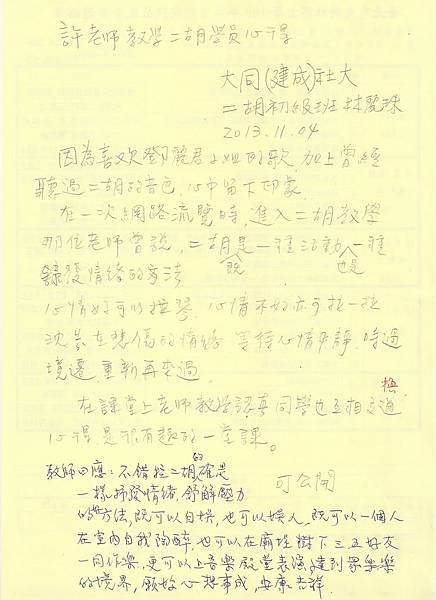 許老師教學二胡學員心得
大同(建成)社大
二胡初級班林麗珠
2013.11.04
因為喜欢鄧麗君小姐的歌,加上曾經
聽過二胡的音色,心中留下印象
在一次網路流覽時,進入二胡教學
那位老師曾說,二胡既是一種活動也是一種
發情緒的方法
心情好可以拉琴,心情不好亦可拉一拉
沈浸在悲傷的情緒 等待心情平靜,時過
境遷 重新再來過
在課堂上老師教學認真同學也互相交通
心得是很有趣的一堂課。
教師回應:不錯拉二胡的確是
一樣抒發情緒,紓解壓力
的好方法,既可以自娛,也可以娛人,既可以一個人
在室內自我陶醉,也可以在廟埕樹下三五好友
一同作樂,更可以上音樂殿堂表演,達到眾樂樂
的境界,願妳心想事成,安康吉祥
可公開